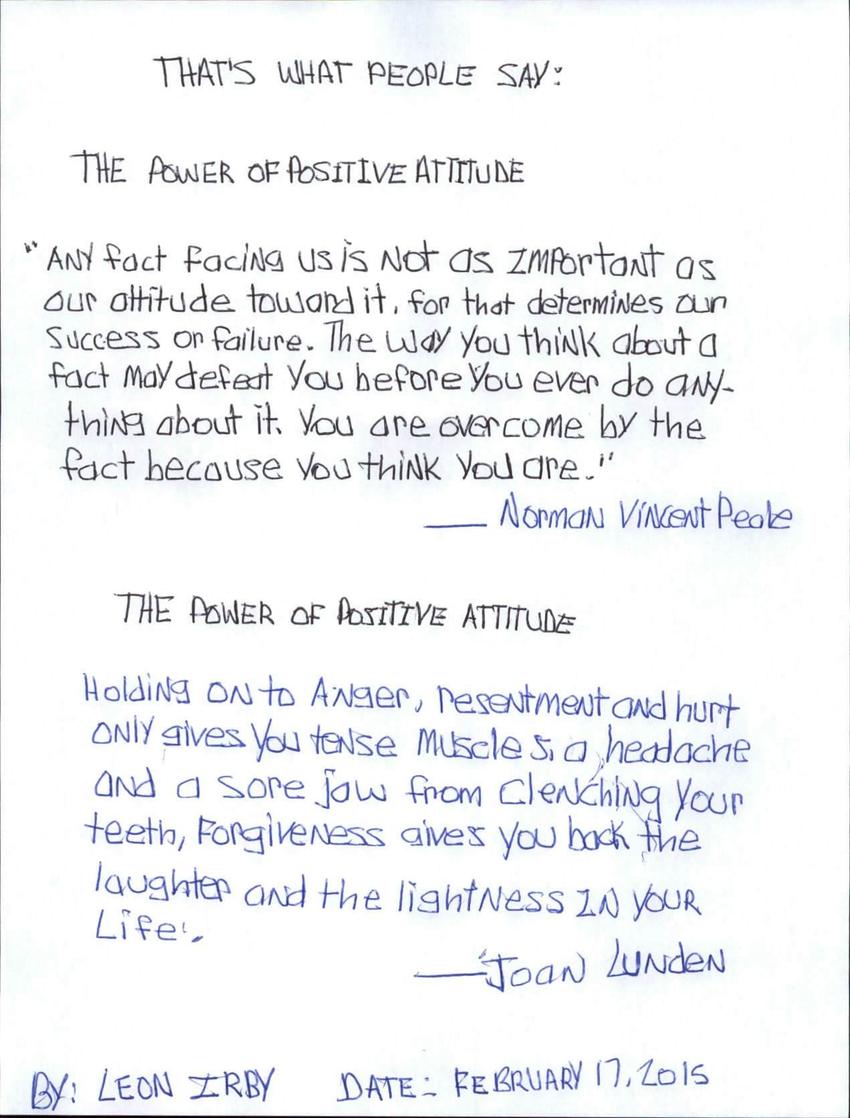 THAT'S WHAT PEOPLE SAY:
THE POWER OF POSITIVE ATTITUDE
"ANY fact facing us is Not as IMPortant as
our attitude toward it, for that determines our
success or failure. The way you think about a
fact may defeat you before you ever do any-
thing about it. You are overcome by the
fact because you think you are."
— Norman Vincent Peale
THE POWER OF POSITIVE ATTITUDE
Holding on to Anger, resentment and hurt
only gives you tense muscles, a headache
and a sore jaw from clenching your
teeth, Forgiveness gives you back the
laughter and the lightness IN YOUR
Life'.
— Joan Lunden
BY: LEON IRBY DATE: FEBRUARY 17, 2015